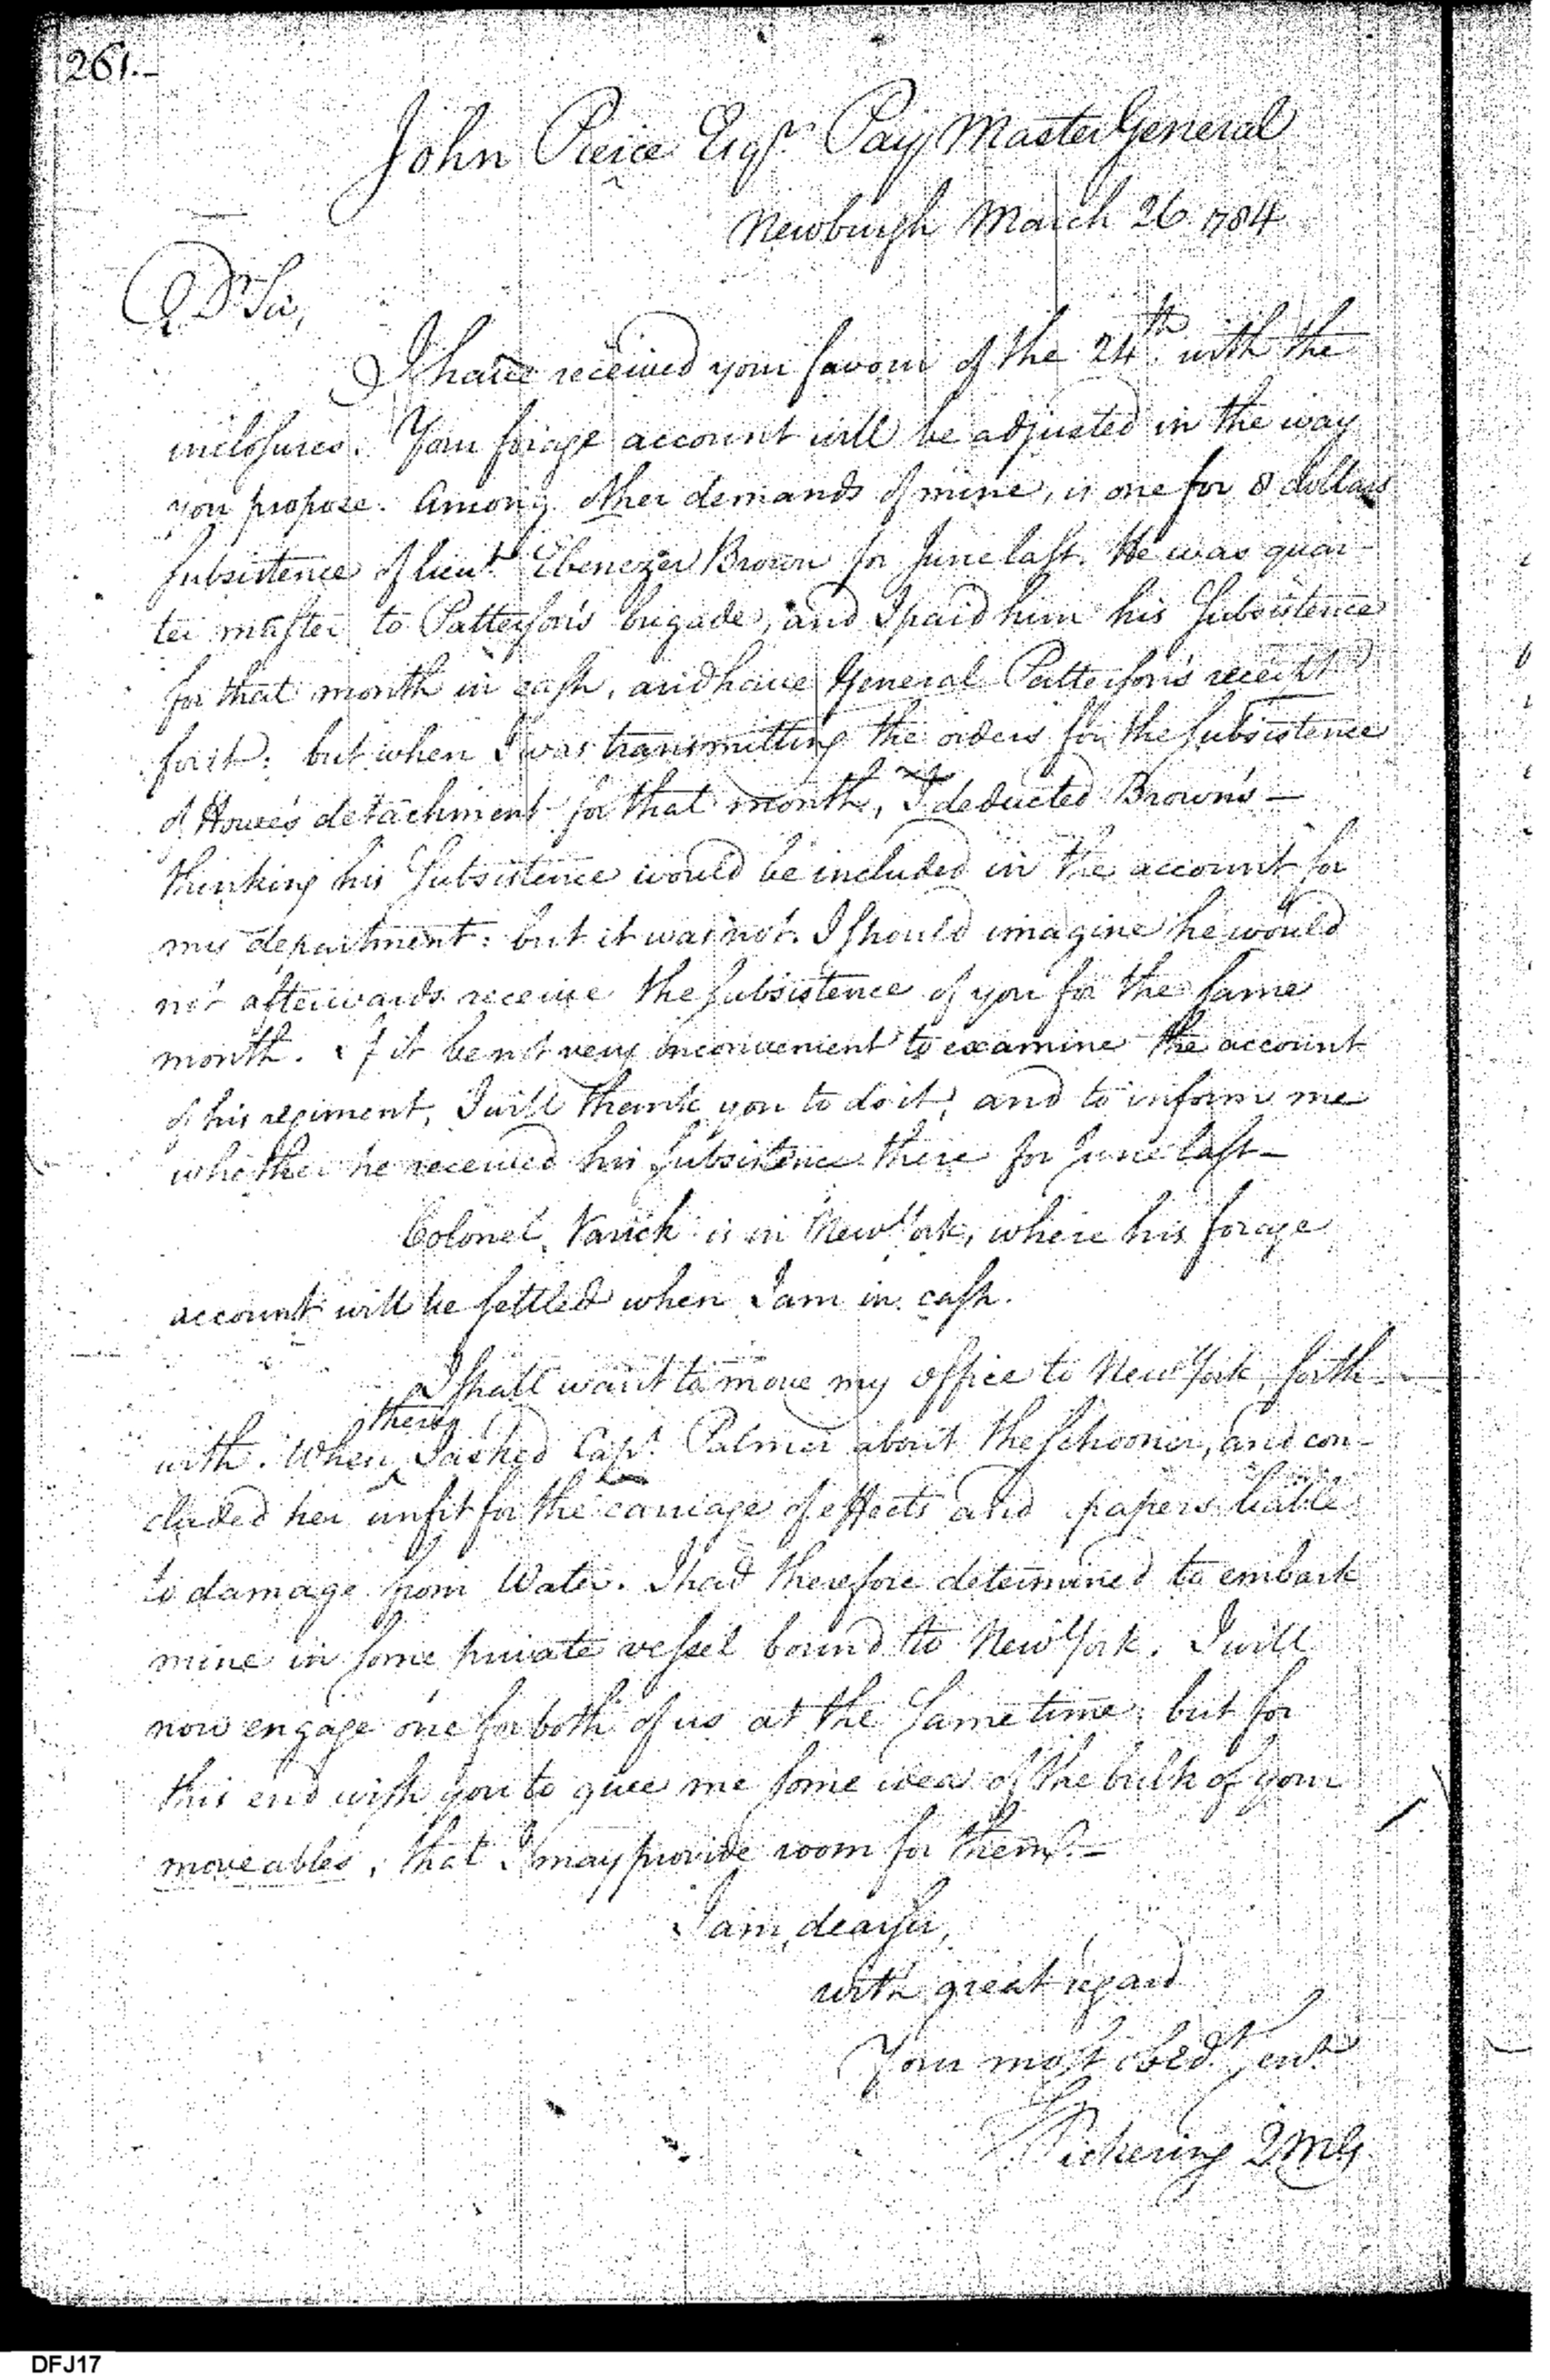 261.-
John Pierce Esqr. Pay Master General
Newburgh March 26 1784
Dr Sir,
I have received your favour of the 24th. with the
inclosures. Your forage account will be adjusted in the way
you propose. Among other demands of mine, is one for 8 dollars
subsistence of lieut. Ebenezer Brown for June last. He was quar-
ter master to Patterson's brigade, and I paid him his Subsistence
for that month in cash, and have General Patterson's receipt
for it: but when I was transmitting the orders for the subsistence
of Howe's detachment for that month, I deducted Brown's -
thinking his Subsistence would be included in the account for
my department: but it was not. I should imagine he would
not afterwards receive the subsistence of you for the same
month. If it be not very inconvenient to examine the account
of his regiment, I will thank you to do it, and to inform me
whether he received his subsistence there for June last -
Colonel Varick is in New York, where his forage
account will be settled when I am in cash.
I shall want to move my office to New York, forth
there
with. When I asked Capt. Palmer about the schooner, and con-
cluded her unfit for the carriage of effects and papers liable
to damage from Water. I had therefore determined to embark
mine in some private vessel bound to New York. I will
now engage one for both of us at the Same time; but for
this end wish you to give me some idea of the bulk of your
moveables, that I may provide room for them. -
I am, dear sir,
with great regard
Your most obedt. servt
Pickering QMG
DFJ17